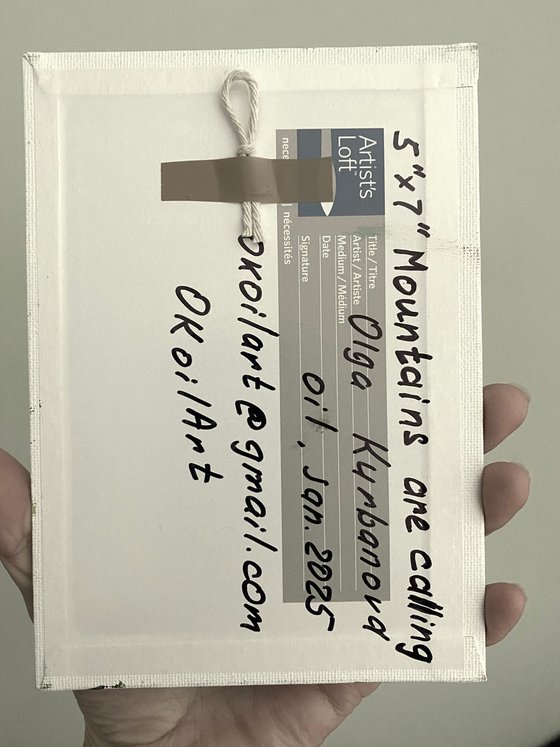 5"x7" Mountains are calling
Artist's
Loft
Title / Titre
Artist / Artiste Olga Kurbanova
Medium / Médium
Date oil, Jan. 2025
Signature
nécessités
okoilart@gmail.com
OKoilArt